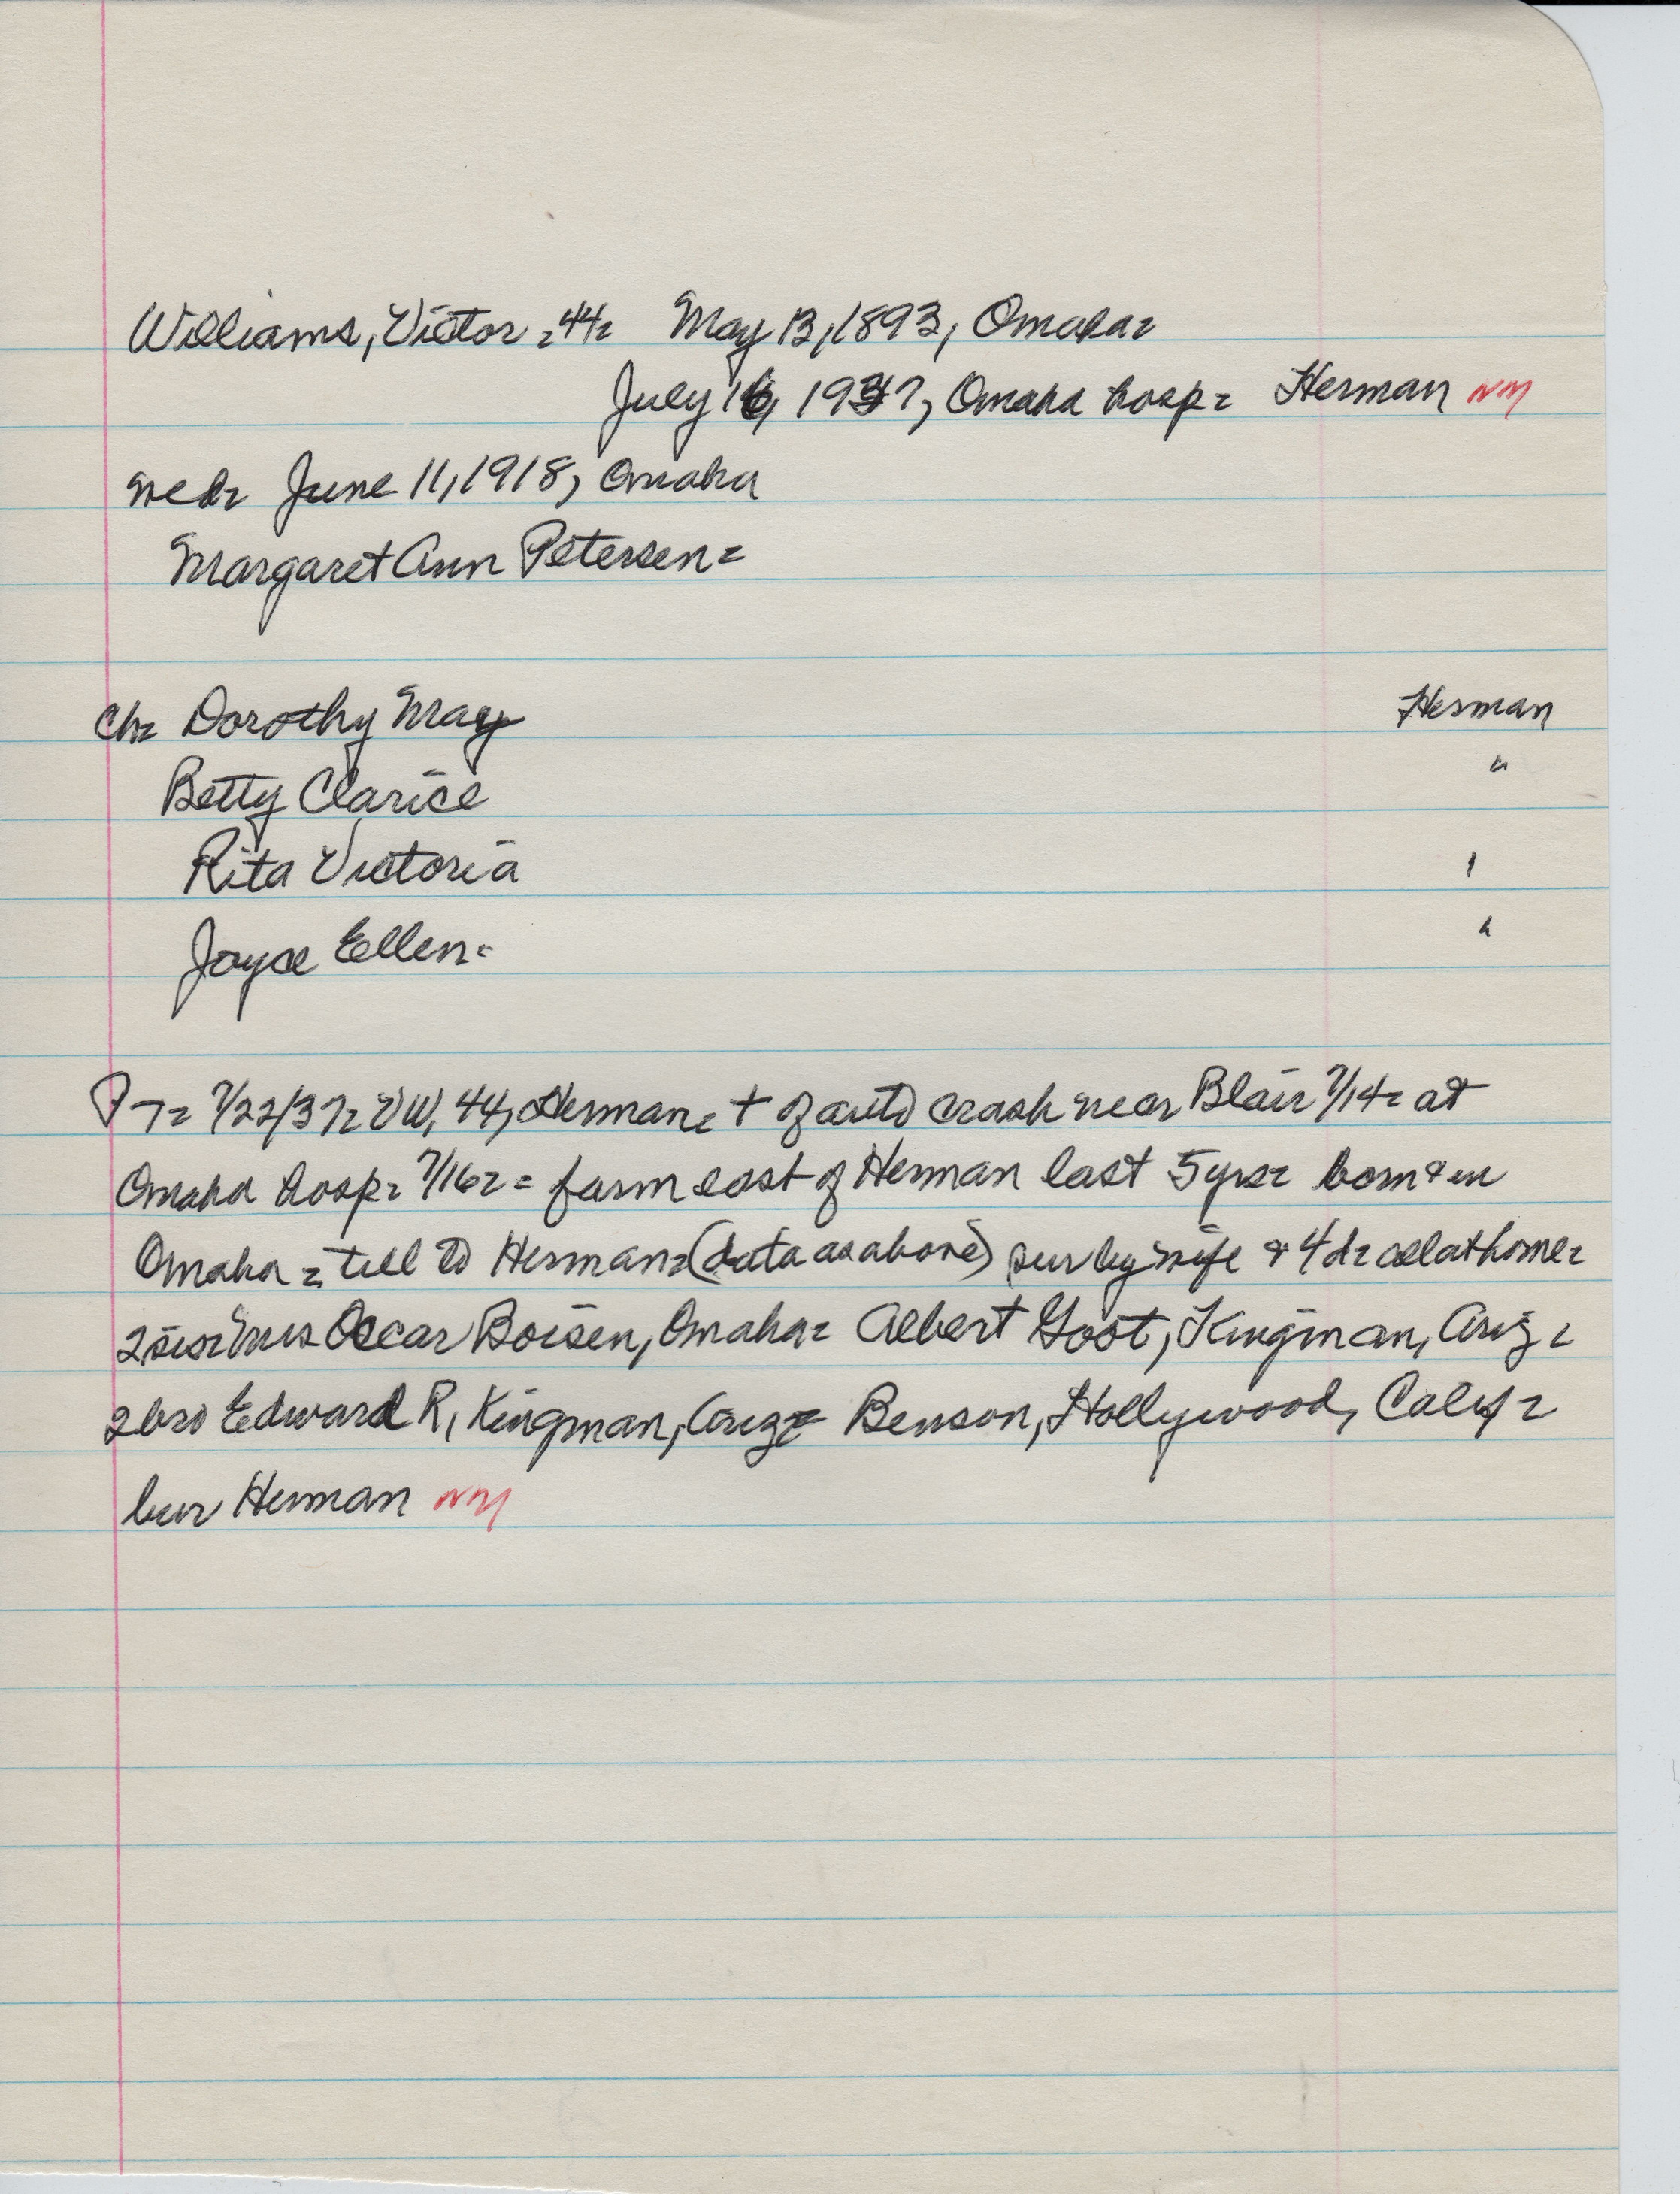 Williams, Victor = 44= May 13, 1893, Omaha=
July 16, 1937, Omaha hosp= Herman NM
wed= June 11, 1918, Omaha
Margaret Ann Petersen=
Ch= Dorothy May Herman
Betty Clarice "
Rita Victoria '
Joyce Ellen= "
PT= 7/22/37= VW, 44, Herman= + of auto crash near Blair 7/14= at
Omaha hosp= 7/16= = farm east of Herman last 5 yrs= born & in
Omaha = till to Herman= (data as above) sur by wife & 4 d= all at home=
2 sis= Mrs Oscar Boisen, Omaha= Albert Goot, Kingman, Ariz=
2 bro Edward R, Kingman, Ariz= Benson, Hollywood, Calif=
bur Herman NM